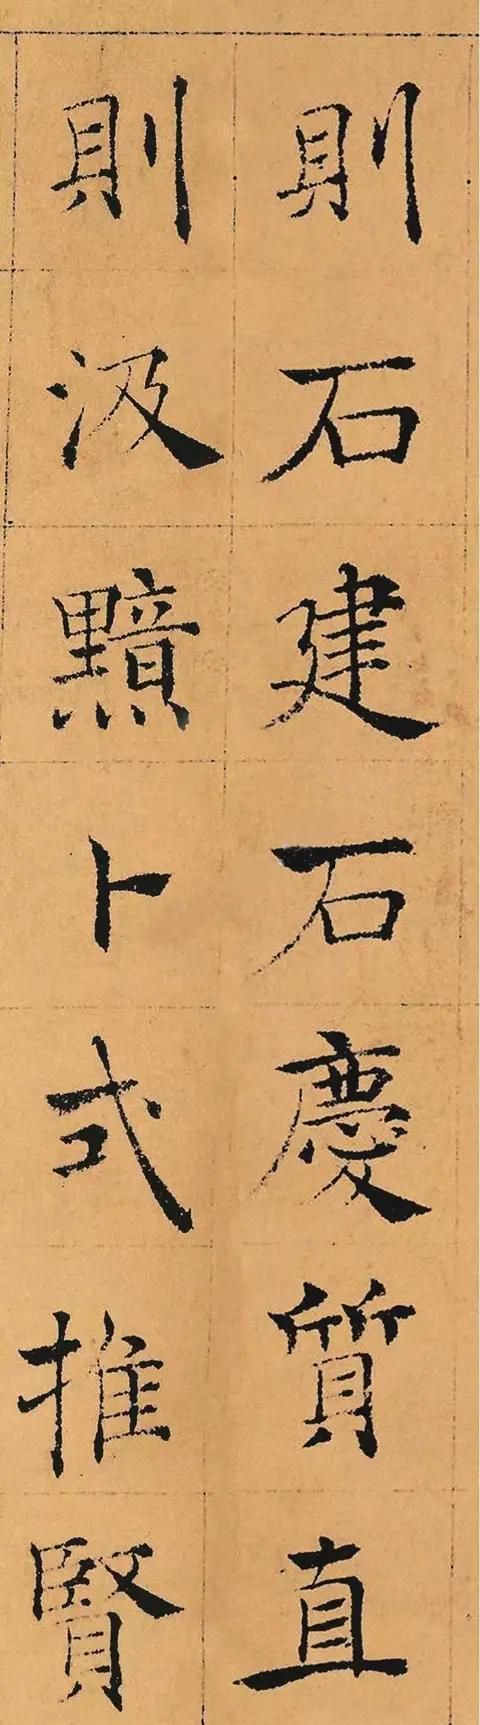 則石建石慶質直
則汲黯卜式推賢